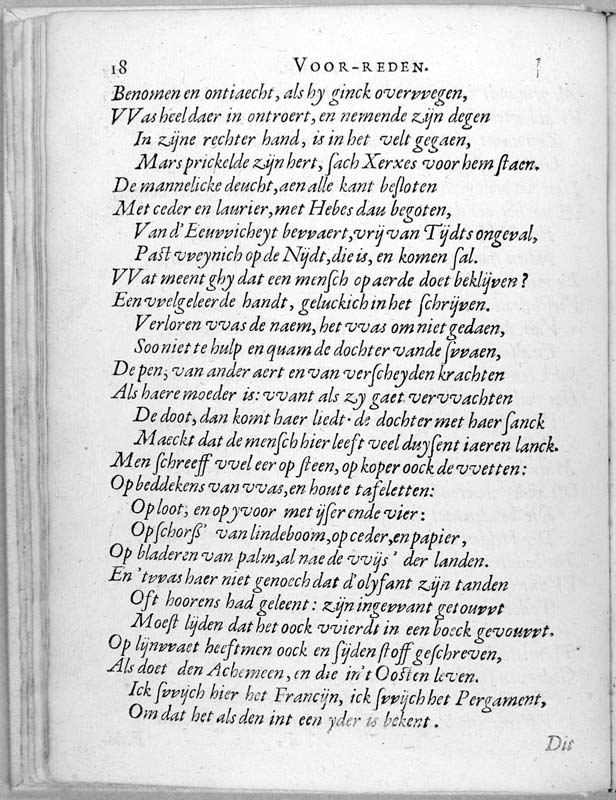 18 VOOR-REDEN.
Benomen en ontiaecht, als hy ginck overvvegen,
VVas heel daer in ontroert, en nemende zijn degen
In zijne rechter hand, is in het velt gegaen,
Mars prickelde zijn hert, sach Xerxes voor hem staen.
De mannelicke deucht, aen alle kant besloten
Met ceder en laurier, met Hebes dau begoten,
Van d'Eeuvvicheyt bevvaert, vrij van Tijdts ongeval,
Past vveynich op de Nijdt, die is, en komen sal.
VVat meent ghy dat een mensch op aerde doet beklijven?
Een vvelgeleerde handt, geluckich in het schrijven.
Verloren vvas de naem, het vvas om niet gedaen,
Soo niet te hulp en quam de dochter vande svvaen,
De pen; van ander aert en van verscheyden krachten
Als haere moeder is: vvant als zy gaet vervvachten
De doot, dan komt haer liedt. de dochter met haer sanck
Maeckt dat de mensch hier leeft veel duysent iaeren lanck.
Men schreeff vvel eer op steen, op koper oock de vvetten:
Op beddekens van vvas, en houte tafeletten:
Op loot, en op yvoor met ijser ende vier:
Op schorss' van lindeboom, op ceder, en papier,
Op bladeren van palm, al nae de vvijs' der landen.
En 'tvvas haer niet genoech dat d'olyfant zijn tanden
Oft hoorens had geleent: zijn ingevvant getouvvt
Moest lijden dat het oock vvierdt in een boeck gevouvvt.
Op lijnvvaet heeft men oock en sijden stoff geschreven,
Als doet den Achemeen, en die in't Oosten leven.
Ick svvijch hier het Francijn, ick svvijch het Pergament,
Om dat het als den int een yder is bekent.
Dit